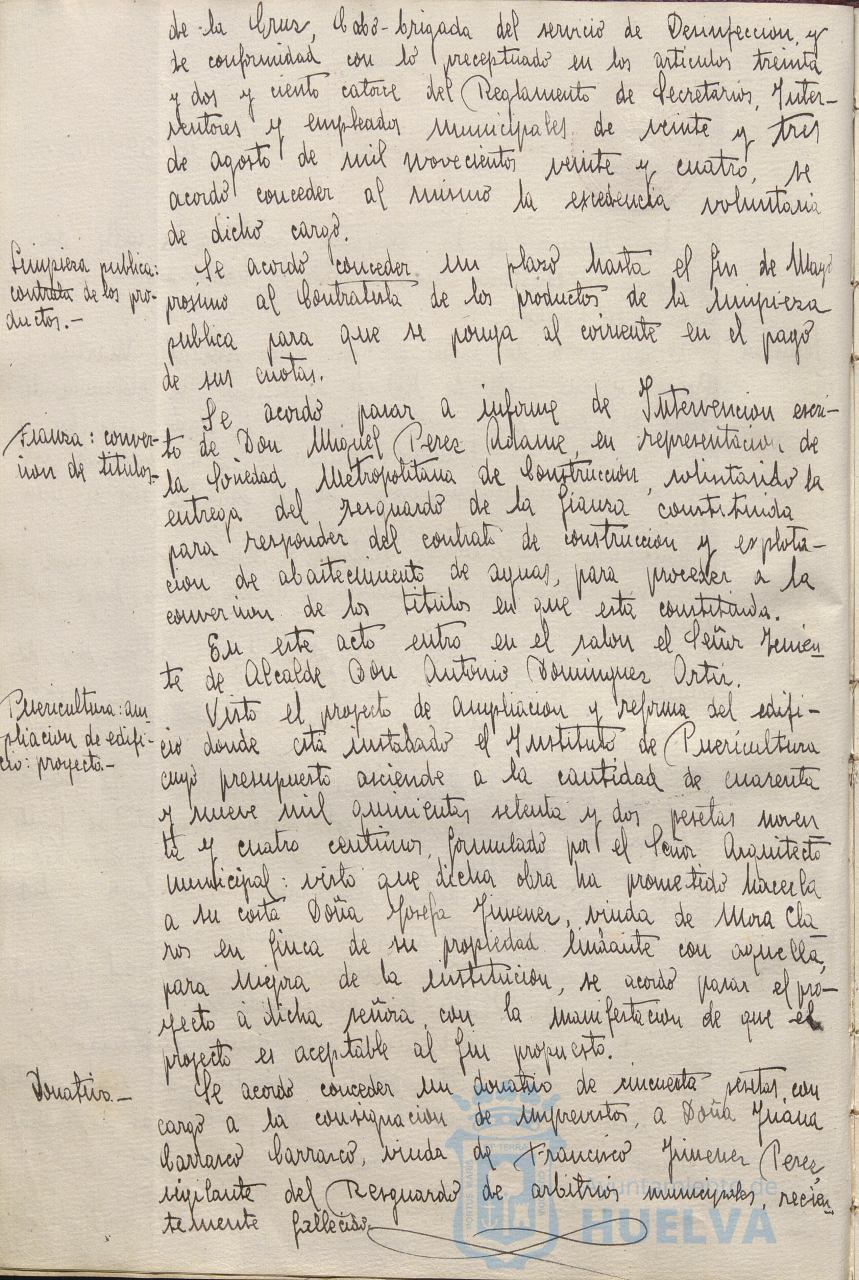 de la Cruz, Cabo-brigada del servicio de Desinfeccion, y
de conformidad con lo preceptuado en los articulos treinta
y dos y ciento catorce del Reglamento de Secretarios, Inter-
ventores y empleados municipales de veinte y tres
de agosto de mil novecientos veinte y cuatro, se
acordó conceder al mismo la excedencia voluntaria
de dicho cargo.
Limpieza publica:
contrata de los pro-
ductos.-
Se acordó conceder un plazo hasta el fin de Mayo
proximo al Contratista de los productos de la limpieza
publica para que se ponga al corriente en el pago
de sus cuotas.
Fianza: conver-
sion de titulos.
Se acordó pasar a informe de Intervencion escri-
to de Don Miguel Perez Adame, en representacion de
la Sociedad Metropolitana de Construccion, solicitando la
entrega del resguardo de la fianza constituida
para responder del contrato de construccion y explota-
cion de abastecimiento de aguas, para proceder a la
conversion de los titulos en que está constituida.
En este acto entró en el salon el Señor Tenien-
te de Alcalde Don Antonio Dominguez Ortiz.
Puericultura: am
pliacion de edifi-
cio: proyecto.-
Visto el proyecto de ampliacion y reforma del edifi-
cio donde está instalado el Instituto de Puericultura
cuyo presupuesto asciende a la cantidad de cuarenta
y nueve mil quinientas setenta y dos pesetas noven
ta y cuatro centimos, formulado por el Señor Arquitecto
municipal: visto que dicha obra ha prometido hacerla
a su costa Doña Josefa Jimenez, viuda de Mora Cla
ros en finca de su propiedad lindante con aquella,
para mejora de la institucion, se acordó pasar el pro-
yecto á dicha señora con la manifestacion de que el
proyecto es aceptable al fin propuesto.
Donativo.-
Se acordó conceder un donativo de cincuenta pesetas, con
cargo a la consignacion de imprevistos, a Doña Juana
Carrasco Carrasco, viuda de Francisco Jimenez Perez,
vigilante del Resguardo de arbitrios municipales, recien-
temente fallecido.
Ayuntamiento de
HUELVA